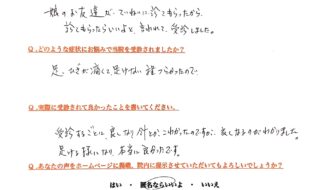 娘のお友達が、ていねいに診てもらったから、
診てもらったらいいよと、言われて、受診しました。
Q.どのような症状にお悩みで当院を受診されましたか?
足、ひざが痛くて、歩けない 程つらかったので、
Q.実際に受診されて良かったことを書いてください。
受診するごとに、良くなり 針とか、こわかったのですが、良くなるのがわかりました。
歩ける様になり、本当に良かったです。
Q.あなたの声をホームページに掲載、院内に提示させていただいてもよろしいでしょうか?
はい ・ 匿名ならいいよ ・ いいえ